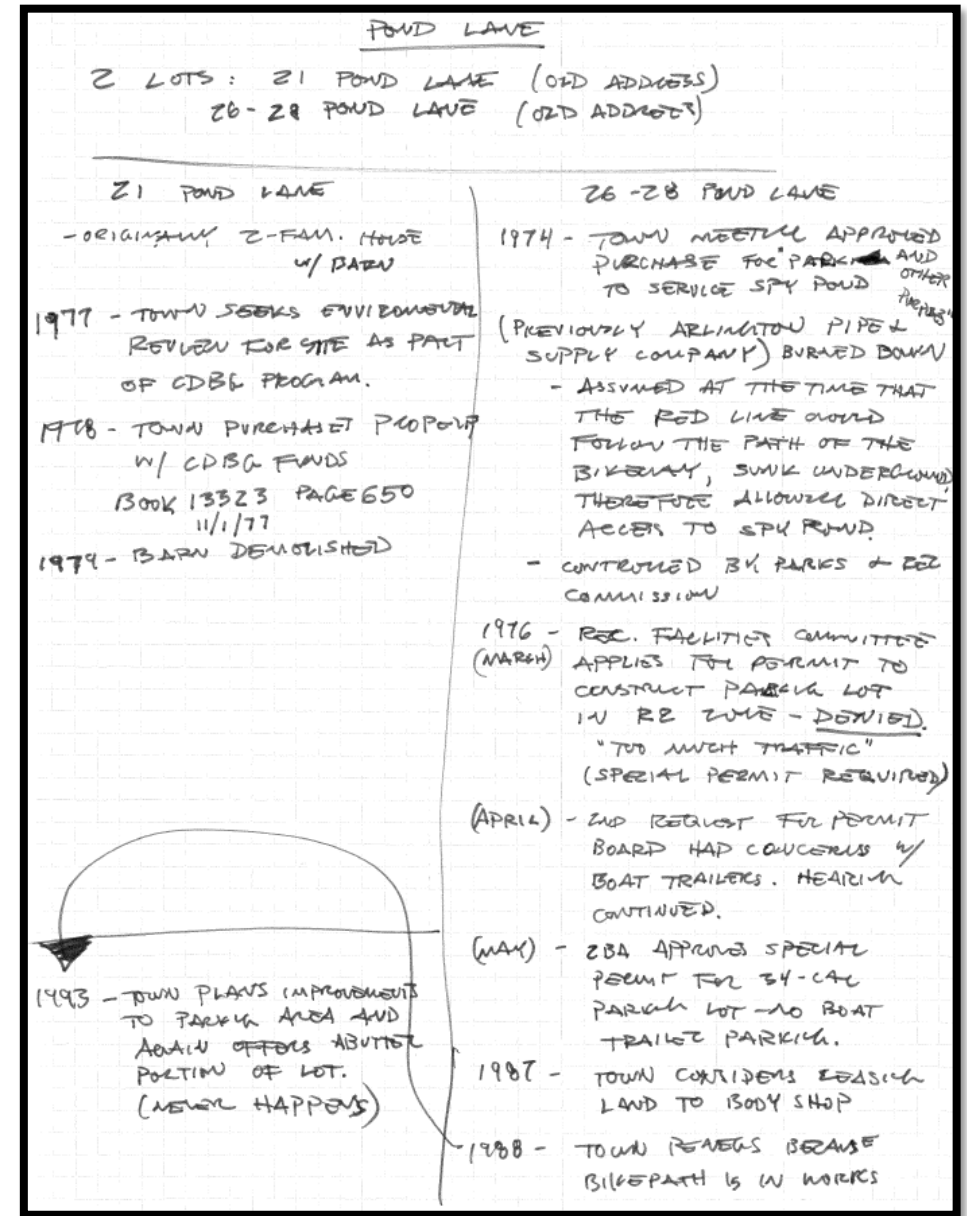 POND LANE
2 LOTS: 21 POND LANE (OLD ADDRESS)
26-28 POND LANE (OLD ADDRESS)
21 POND LANE
- ORIGINALLY 2-FAM. HOUSE
W/ BARN
1977 - TOWN SEEKS ENVIROMENTAL
REVIEW FOR SITE AS PART
OF CDBG PROGRAM.
1978 - TOWN PURCHASES PROPERTY
W/ CDBG FUNDS
BOOK 13323 PAGE 650
11/1/77
1979 - BARN DEMOLISHED
26-28 POND LANE
1974 - TOWN MEETING APPROVED
PURCHASE FOR "PARK AND
OTHER
PURPOSES"
TO SERVICE SPY POND
(PREVIOUSLY ARLINGTON PIPE &
SUPPLY COMPANY) BURNED DOWN
- ASSUMED AT THE TIME THAT
THE RED LINE WOULD
FOLLOW THE PATH OF THE
BIKEWAY, SUNK UNDERGROUND,
THEREFORE ALLOWING DIRECT
ACCESS TO SPY POND.
- CONTROLLED BY PARKS & REC
COMMISSION
1976 - REC. FACILITIES COMMITTEE
(MARCH) APPLIES FOR PERMIT TO
CONSTRUCT PARKING LOT
IN R2 ZONE - DENIED.
"TOO MUCH TRAFFIC"
(SPECIAL PERMIT REQUIRED)
(APRIL) - 2ND REQUEST FOR PERMIT
BOARD HAD CONCERNS W/
BOAT TRAILERS. HEARING
CONTINUED.
(MAY) - ZBA APPROVES SPECIAL
PERMIT FOR 34-CAR
PARKING LOT - NO BOAT
TRAILER PARKING.
1987 - TOWN CONSIDERS LEASING
LAND TO BODY SHOP
1988 - TOWN RENEGS BECAUSE
BIKEPATH IS IN WORKS
1993 - TOWN PLANS IMPROVEMENTS
TO PARKING AREA AND
AGAIN OFFERS ABUTTER
PORTION OF LOT.
(NEVER HAPPENS)